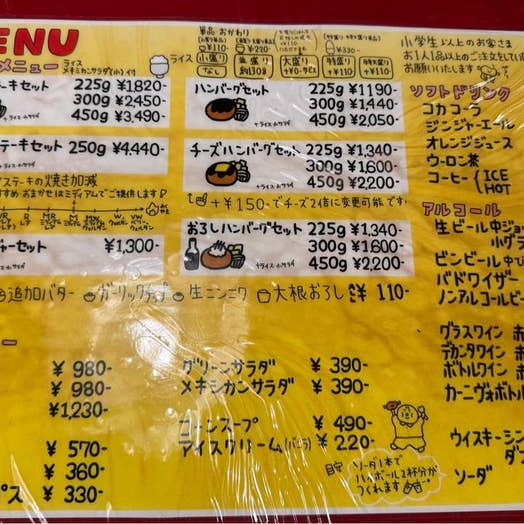 ENU
メニュー
ライス
メキシカンサラダ(小)付
単品 おかわり
小盛り
なし
並盛り
約130g
大盛り
+¥0-サービス
特盛り
+¥110-
小学生以上のお客さま
お1人1品以上のご注文をしてい
お願いいたします
ーキセット 225g ¥1,820-
300g ¥2,450-
450g ¥3,490-
テーキセット 250g ¥4,440-
ステーキの焼き加減
すすめ おまかせはミディアムでご提供します
ャーセット ¥1,300-
ハンバーグセット 225g ¥1190-
300g ¥1,440-
450g ¥2,050-
チーズハンバーグセット 225g ¥1,340-
300g ¥1,600-
450g ¥2,200-
+¥150-でチーズ2倍に変更可能です
おろしハンバーグセット 225g ¥1,340-
300g ¥1600-
450g ¥2,200-
追加バター ガーリックチップ 生ニンニク 大根おろし 各¥110-
ー
¥980-
¥980-
¥1,230-
¥570-
¥360-
プス ¥330-
グリーンサラダ ¥390-
メキシカンサラダ ¥390-
コーンスープ ¥490-
アイスクリーム(バニラ) ¥220-
目安 ソーダ1本で
ハイボール2杯分が
つくれます
ソフトドリンク
コカコーラ
ジンジャーエール
オレンジジュース
ウーロン茶
コーヒー ICE
HOT
アルコール
生ビール 中ジョ
小グラ
ビンビール 中び
バドワイザー
ノンアルコールビー
グラスワイン 赤
デカンタワイン 赤
ボトルワイン 赤
カーニヴォボトル
ウイスキー シン
ダブ
ソーダ